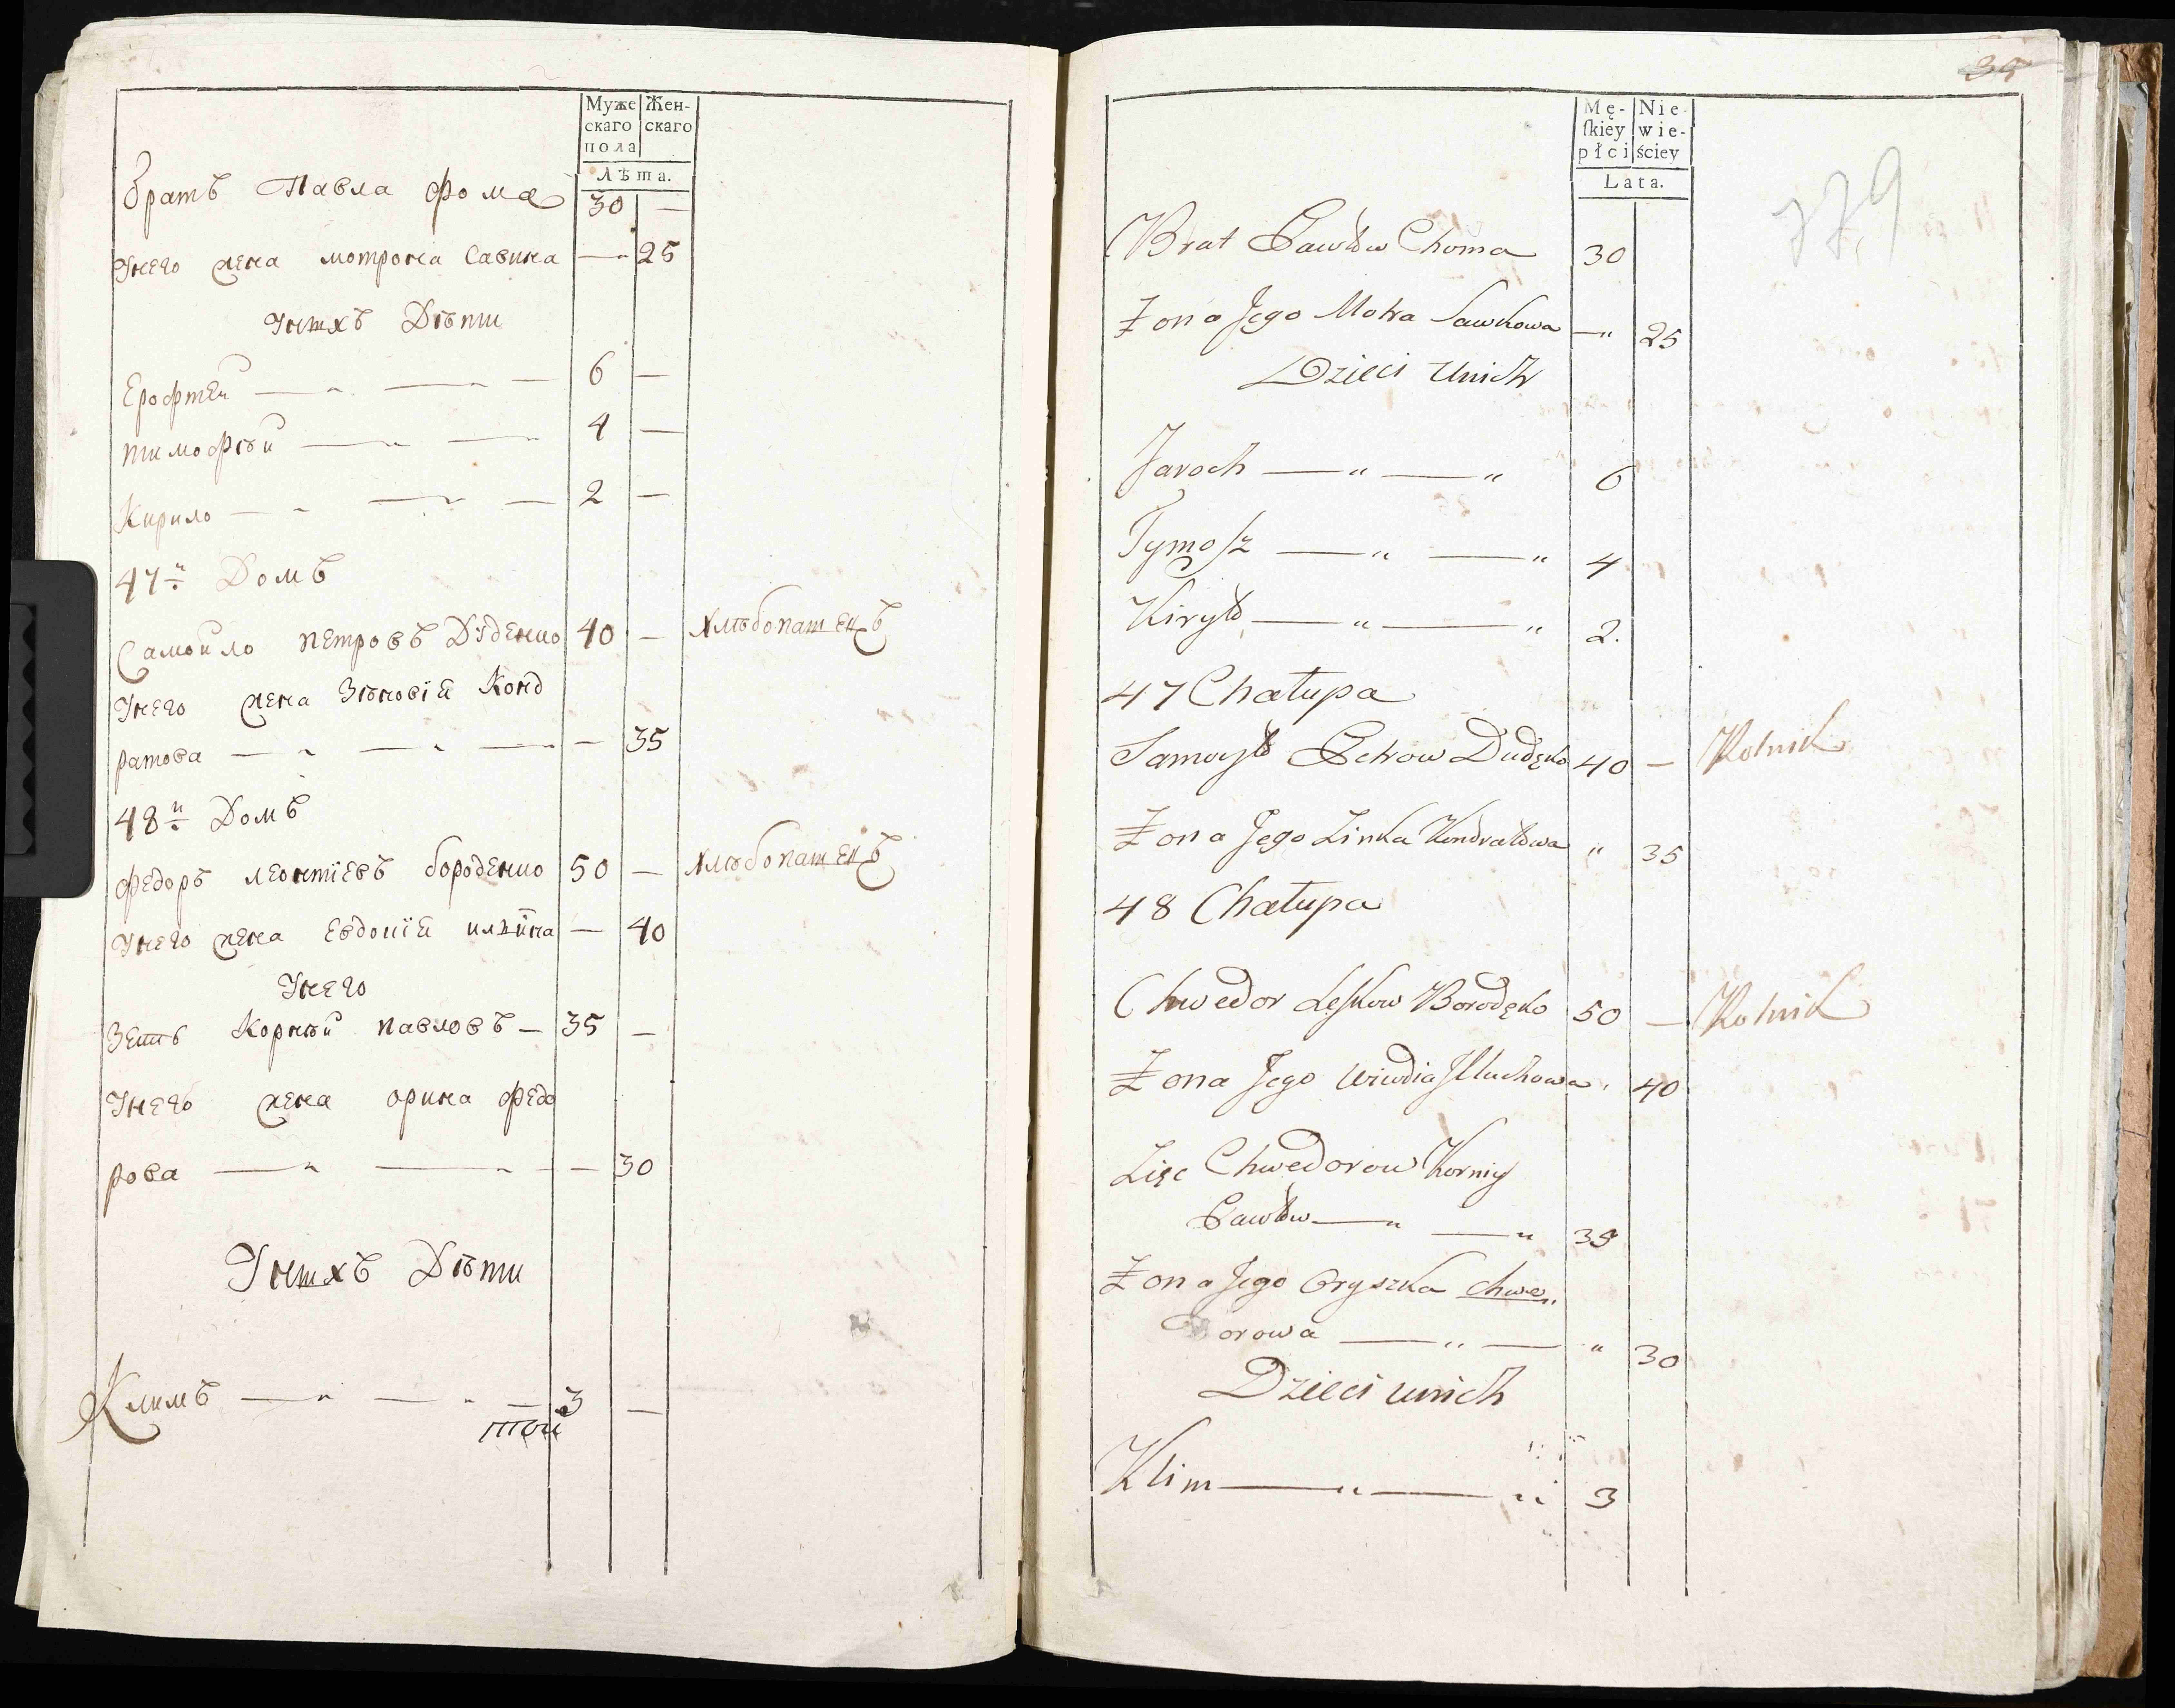 Муже Жен-
скаго скаго
пола
Лѣта.
братъ Павла Фома 30 —
унего жена мотрона Савина — 25
унихъ Дѣти
Ерофтей — „ — „ — 6 —
тимофѣй — „ — „ 4 —
Кирило — „ — „ — 2 —
47й Домъ
Самойло петровъ Дуденко 40 — хлѣбопашецъ
унего жена Зѣновія Конд
ратова — „ — „ — „ — 35
48й Домъ
Федоръ леонтіевъ бороденко 50 — хлѣбопашецъ
унего жена Евдокія ильйна — 40
унего
Зеть Корнѣй павловъ — 35 —
унего жена орина Федо
рова — „ — „ — 30
унихъ Дѣти
Климъ — „ — „ — 3 —
той
34
779
Mę- Nie-
ſkiey wie-
płci ściey
Lata.
Brat Pawłow Choma 30
Żona Jego Motra Sawkowa — „ 25
Dzieci unich
Jaroch — „ — „ 6
Tymosz — „ — „ 4
Kiryło — „ — „ 2.
47 Chałupa
Samoyło Petrow Dudęko 40 — Rolnik
Żona Jego Zinka Kondratowa „ 35
48 Chałupa
Chwedor Leskow Borodęko 50 — Rolnik
Żona Jego Wiwdia Jlluchowa „ 40
Zięc Chwedorow Korniy
Pawłow — „ — „ 35
Żona Jego Oryszka Chwe„
dorowa — „ — „ 30
Dzieci unich
Klim — „ — „ 3